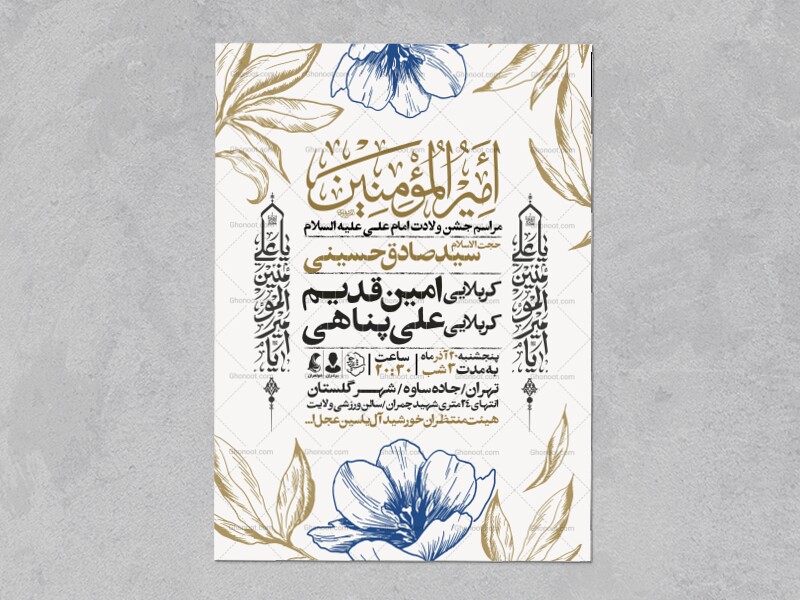 أَمِيرُالْمُؤْمِنِينَ
مراسم جشن ولادت امام علی علیه السلام
حجت الاسلام
سیدصادق حسینی
کربلایی امین قدیم
کربلایی علی پناهی
پنجشنبه ۲۰ آذر ماه
به مدت ۳ شب
ساعت
۲۰:۳۰
تهران/جاده ساوه/شهر گلستان
انتهای ۲۴ متری شهید چمران/سالن ورزشی ولایت
هیئت منتظران خورشید آل یاسین عجل ا...
Ghonoot.com